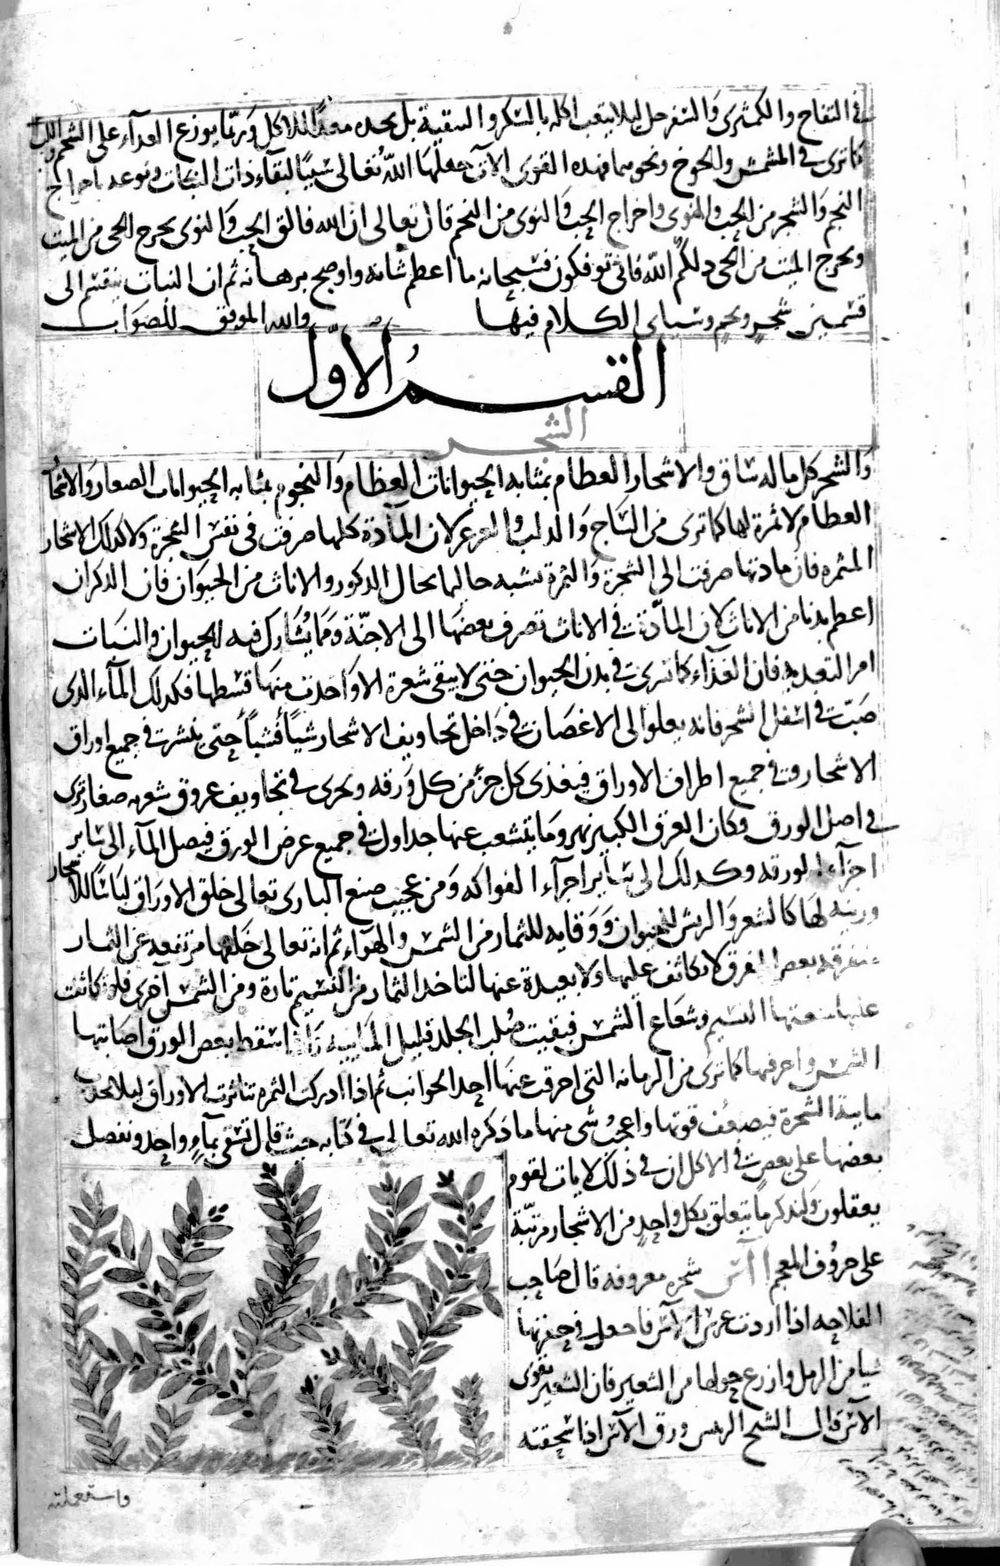 في التفاح والكمثرى والسفرجل ليلا يتعب اكله بالتكرر والتنقية بل يجده معدًا للاكل وربما يوزع الغدآء على الشحم واللب
كما ترى في المشمش والخوخ ونحوهما فهده القوى الاتى جعلها الله تعالى سببًا لبقاء ذات النبات ونوعه باخراج
النجم والشجر من الحب والنوى واخراج الحب والنوى من النجم قال تعالى ان الله فالق الحب والنوى يخرج الحى من الميت
ويخرج الميت من الحى دلكم الله فانى توفكون فسبحانه ما اعظم شانه واوضح برهانه ثم ان النبات ينقسم الى
قسمين شجر ونجم وسياتى الكلام فيها والله الموفق للصواب
القسم الاول
الشجر
والشجر كل ما له ساق والاشجار العظام بمثابه الحيوانات العظام والنجوم بمثابه الحيوانات الصغار والاشجار
العظام لا ثمرة لها كما ترى من الساج والدلب والعرعر لان المآدة كلها صرفت فى نفس الشجرة ولا كدلك الاشجار
المثمره فان مادتها صرفت الى الشجرة والثمرة يشبه حالها بحال الدكور والاناث من الحيوان فان الدكران
اعظم بدنا من الاناث لان المآدة في الاناث تصرف بعضها الى الاجنّة ومما يشارك فيه الحيوان والنبات
امر التغديه فان الغدآء كما ترى في بدن الحيوان حتى لا يبقى شعرة الا واخدت منها قسطها فكدلك المآء الدى
صبّ في اسفل الشجر فانه يعلوا الى الاغصان في داخل تجاويف الاشجار شيأ فشيأ حتى ينشر في جميع اوراق
الاشجار وفي جميع اطراف الاوراق فيغدى كل جزء من كل ورقه ويجرى في تجاويف عروق شعريه صغار ترى
في اصل الورق فكان العرق الكبير نهر وما يتشعب عنها جداول في جميع عرض الورق فيصل المآء الى ساير
اجزآء الورقه وكدلك الى ساير اجزآء الفواكه ومن عجيب صنع البارى تعالى خلق الاوراق لباسًا للاشجار
وزينه لها كالشعر والريش للحيوان ووقايه للثمار من الشمس والهوآء ثم انه تعالى خلقها مرتفعه عن الثمار
متفرقه بعض التفرق لا متكاثف عليها ولا بعيدة عنها لتاخد الثمار من النسيم تارة ومن الشمس اخرى فلو كاثفت
عليها منعتها النسيم وشعاع الشمس فبقيت صلب الجلد قليل المائيه واذا استقط بعض الورق اصابتها
الشمس واحرقتها كما ترى من الرمانه التى احرقت عنها احد الجوانب ثم اذا ادركت الثمره تناثرت الاوراق ليلا تجدب
مايية الشجرة فيضعف قوتها واعجب شى منها ما ذكره الله تعالى في كتابه حيث قال تسقى بمآء واحد ونفضل
بعضها على بعض في الاكل ان في ذلك لايات لقوم
يعقلون ولندكر ما يتعلق بكل واحد من الاشجار مرتبّة
على حروف المعجم آس شجره معروفه قال صاحب
الفلاحه اذا اردت غرس الآس فاجعل في حفرتها
شيا من الرمل وازرع حولها من الشعير فان الشعير يقوى
الآس قال الشيخ الريس ورق الآس اذا سحقته
واستعملته